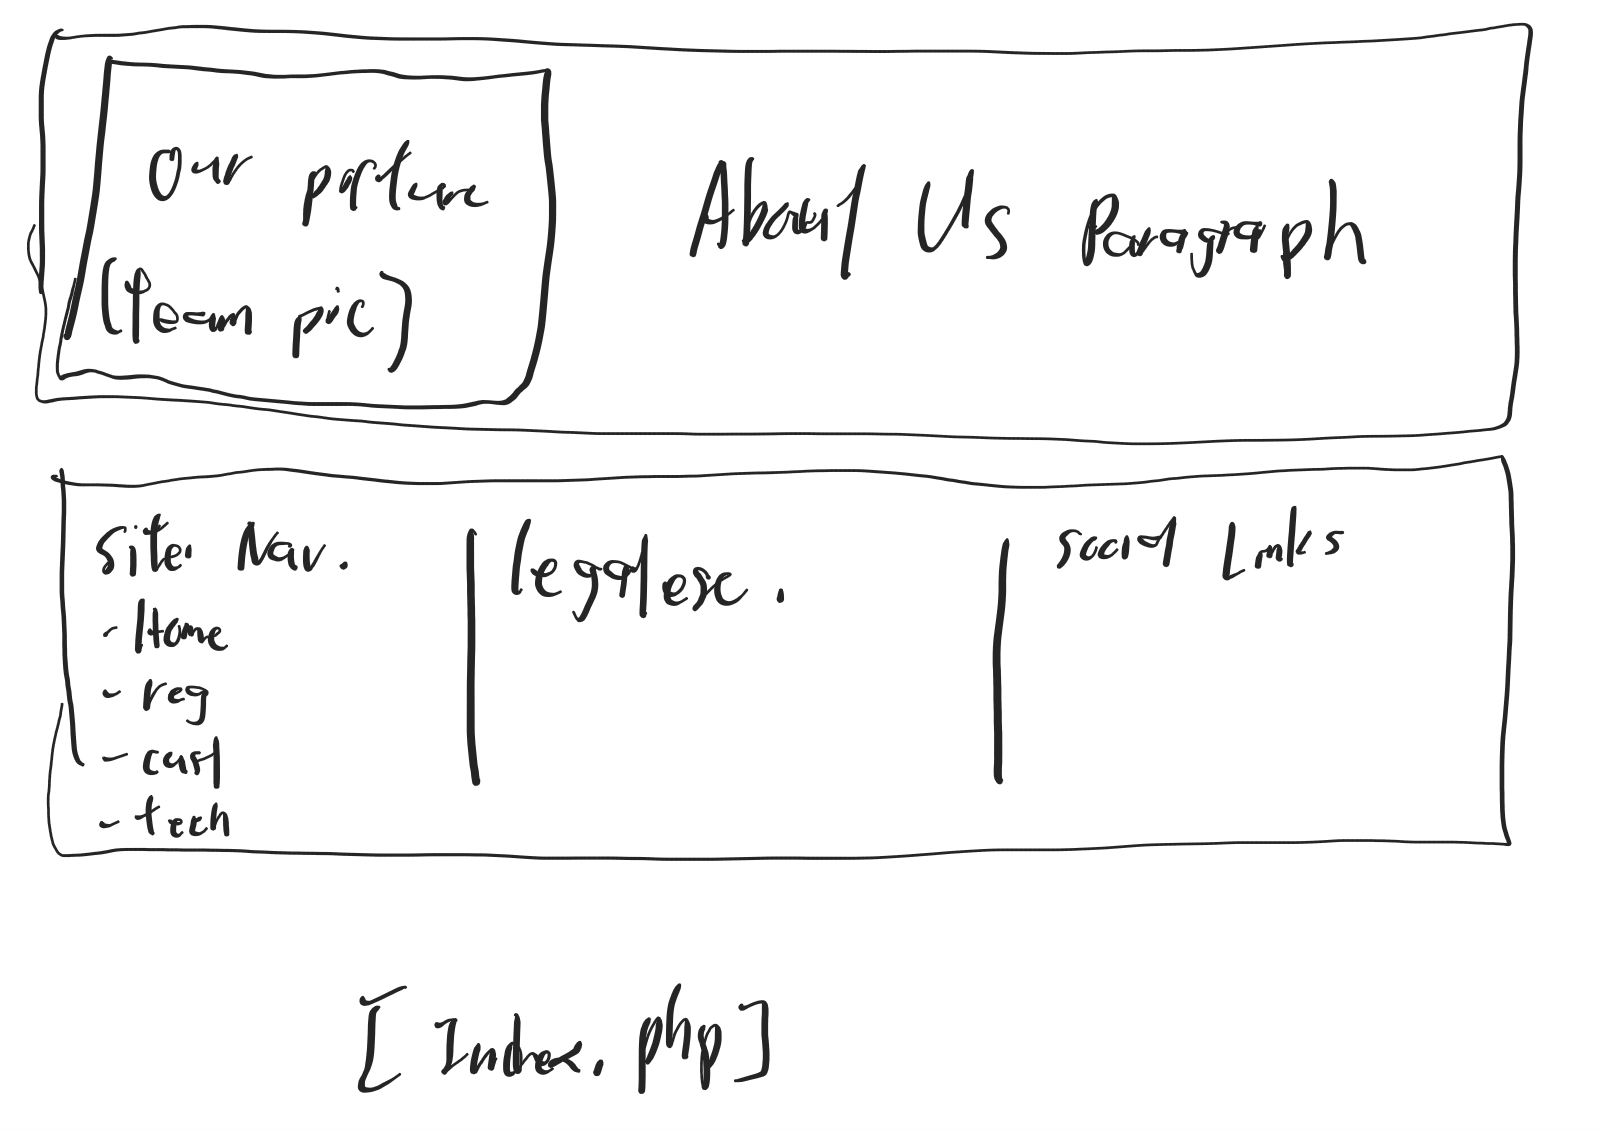 Our picture
(team pic)
About Us Paragraph
Site Nav.
- Home
- reg
- cust
- tech
legalese.
Social Links
[Index.php]